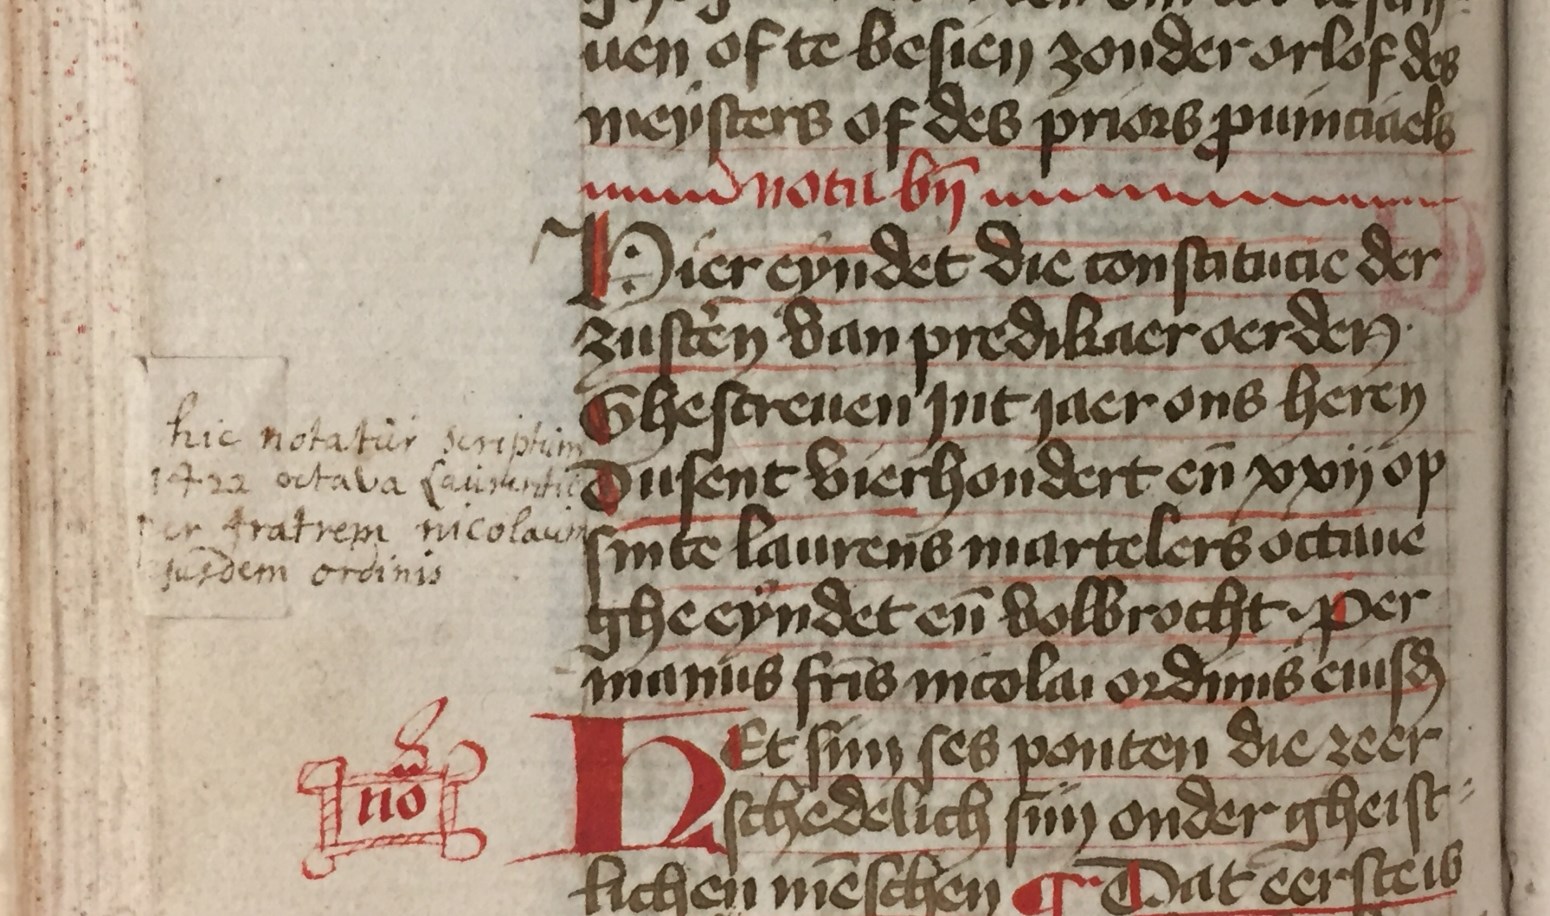 uen of te besien zonder orlof des
meysters of des priors puinciaels
nota bn̄
Hier eyndet die constitucie der
zustẽn van predikaer oerden
Ghescreuen jnt jaer ons heren
Dusent vierhondert en̄ xxij op
sinte laurens martelers octaue
ghe eyndet en̄ volbrocht · Per
manus fr̄is nicolai ordinis eiusd
hic notatur scriptum
1422 octava Laurentii
er fratrem nicolaum
iusdem ordinis
HEt sijn ses ponten die zeer
schedelich sijn onder gheist-
lichen mēschen ¶ Dat eerste is
nō